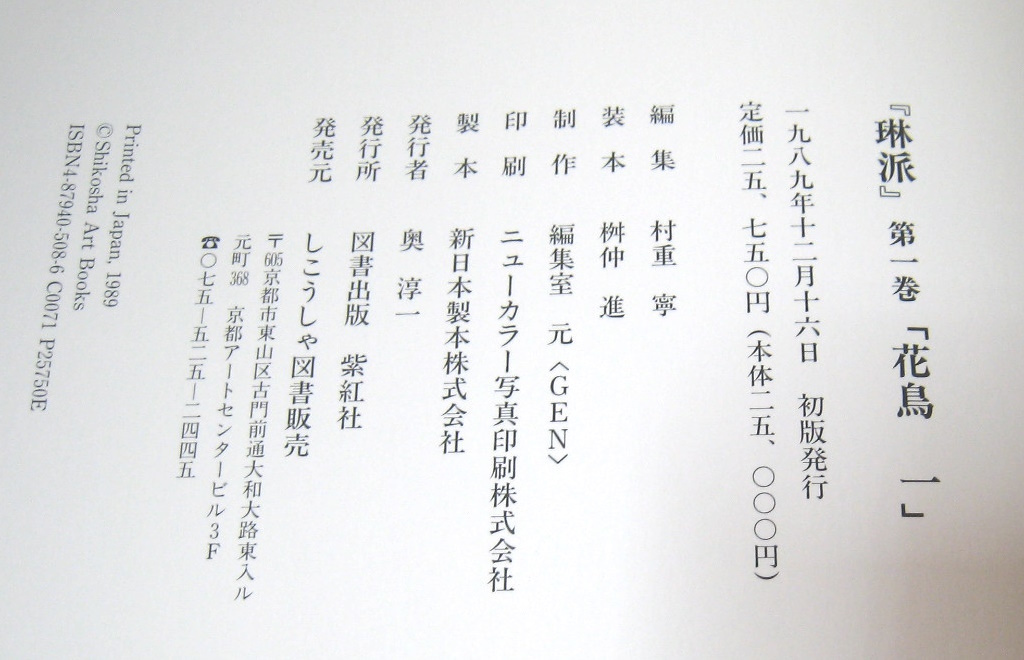 『琳派』 第一巻 「花鳥 一」
一九八九年十二月十六日 初版発行
定価二五、七五〇円（本体二五、〇〇〇円）
編集 村重 寧
装本 桝仲 進
制作 編集室 元〈GEN〉
印刷 ニューカラー写真印刷株式会社
製本 新日本製本株式会社
発行者 奥 淳一
発行所 図書出版 紫紅社
発売元 しこうしゃ図書販売
〒605京都市東山区古門前通大和大路東入ル
元町368 京都アートセンタービル3F
☎〇七五―五二五―二四四五
Printed in Japan, 1989
©Shikosha Art Books
ISBN4-87940-508-6 C0071 P25750E